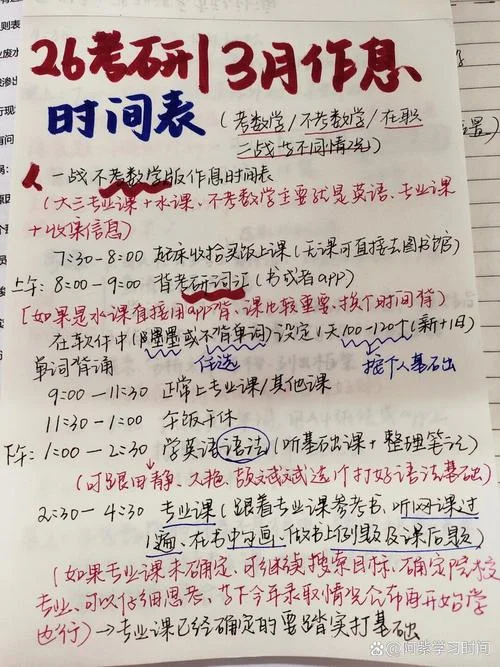 26考研|3月作息
时间表(考数学/不考数学/在职
二战等不同情况)
一战不考数学版作息时间表
(大三专业课+水课、不考数学主要就是英语、专业课
+收集信息)
7:30-8:00 起床收拾买饭上课(无课可直接去图书馆)
上午: 8:00-9:00 背考研词汇(书或者app)
[如果是水课直接用app背、课比较重要、挟个时间背)
在软件中(墨墨或不背单词)设定1天100-120个(新+旧)
单词背诵 任选 按个人基础
9:00-11:30 正常上专业课/其他课
11:30-1:00 午饭午休
下午: 1:00-2:30 学英语语法(听基础课+整理笔记)
(可跟田静、艳、颉斌斌选个打好语法基础)
2:30-4:30 专业课(跟着专业课参考书、听网课过
1遍、在书中勾画、做书上例题及课后题)
(如果专业课未确定、可继续搜索目标、确定院校
专业、可以仔细思考、等下今年录取情况公布再开始学
也行)→专业课已经确定的要踏实打基础
头条 @阿紫学习时间